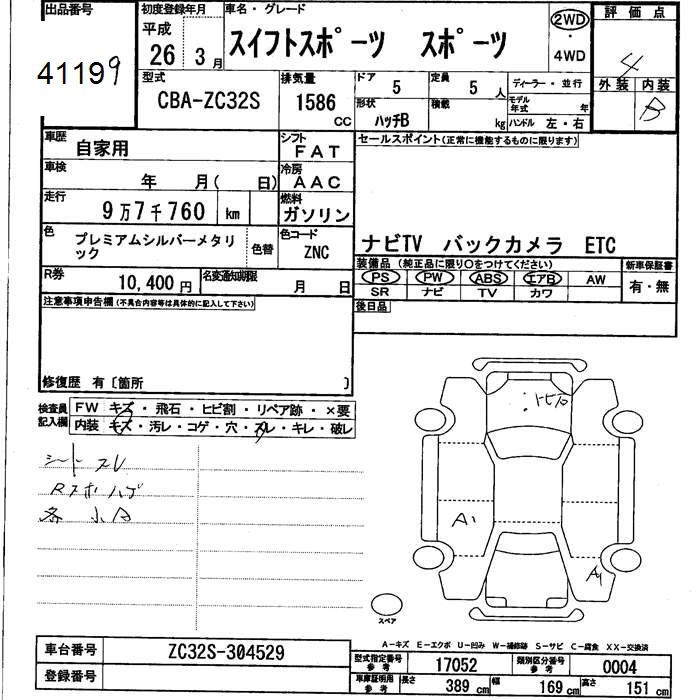 出品番号
41199
初度登録年月
平成
26 3月
車名・グレード
スイフトスポーツ スポーツ
2WD
・
4WD
評価点
4
外装 内装
B
型式
CBA-ZC32S
排気量
1586
CC
ドア 5
定員 5人
ディーラー・並行
形状 ハッチB
積載 kg
モデル年式 年
ハンドル 左・右
車歴 自家用
シフト FAT
セールスポイント(正常に機能するものに限ります)
車検 年 月( 日)
冷房 AAC
走行 9万7千760 km
燃料 ガソリン
色 プレミアムシルバーメタリック
色替
色コード ZNC
ナビTV バックカメラ ETC
装備品(純正品に限り○をつけてください)
新車保証書
PS PW ABS エアB AW
有・無
SR ナビ TV カワ
R券 10,400円
名変通知期限 月 日
後日品
注意事項申告欄(不具合内容等は具体的に記入して下さい)
修復歴 有〔箇所 〕
検査員記入欄
FW キズ・飛石・ヒビ割・リペア跡・×要
内装 キズ・汚レ・コゲ・穴・スレ・キレ・破レ
シートスレ
トビ石
A1
A1
スペア
A-キズ E-エクボ U-凹み W-補修跡 S-サビ C-腐食 XX-交換済
車台番号 ZC32S-304529
登録番号
型式指定番号参考 17052
類別区分番号参考 0004
車庫証明用参考 長さ 389cm 幅 169cm 高さ 151cm